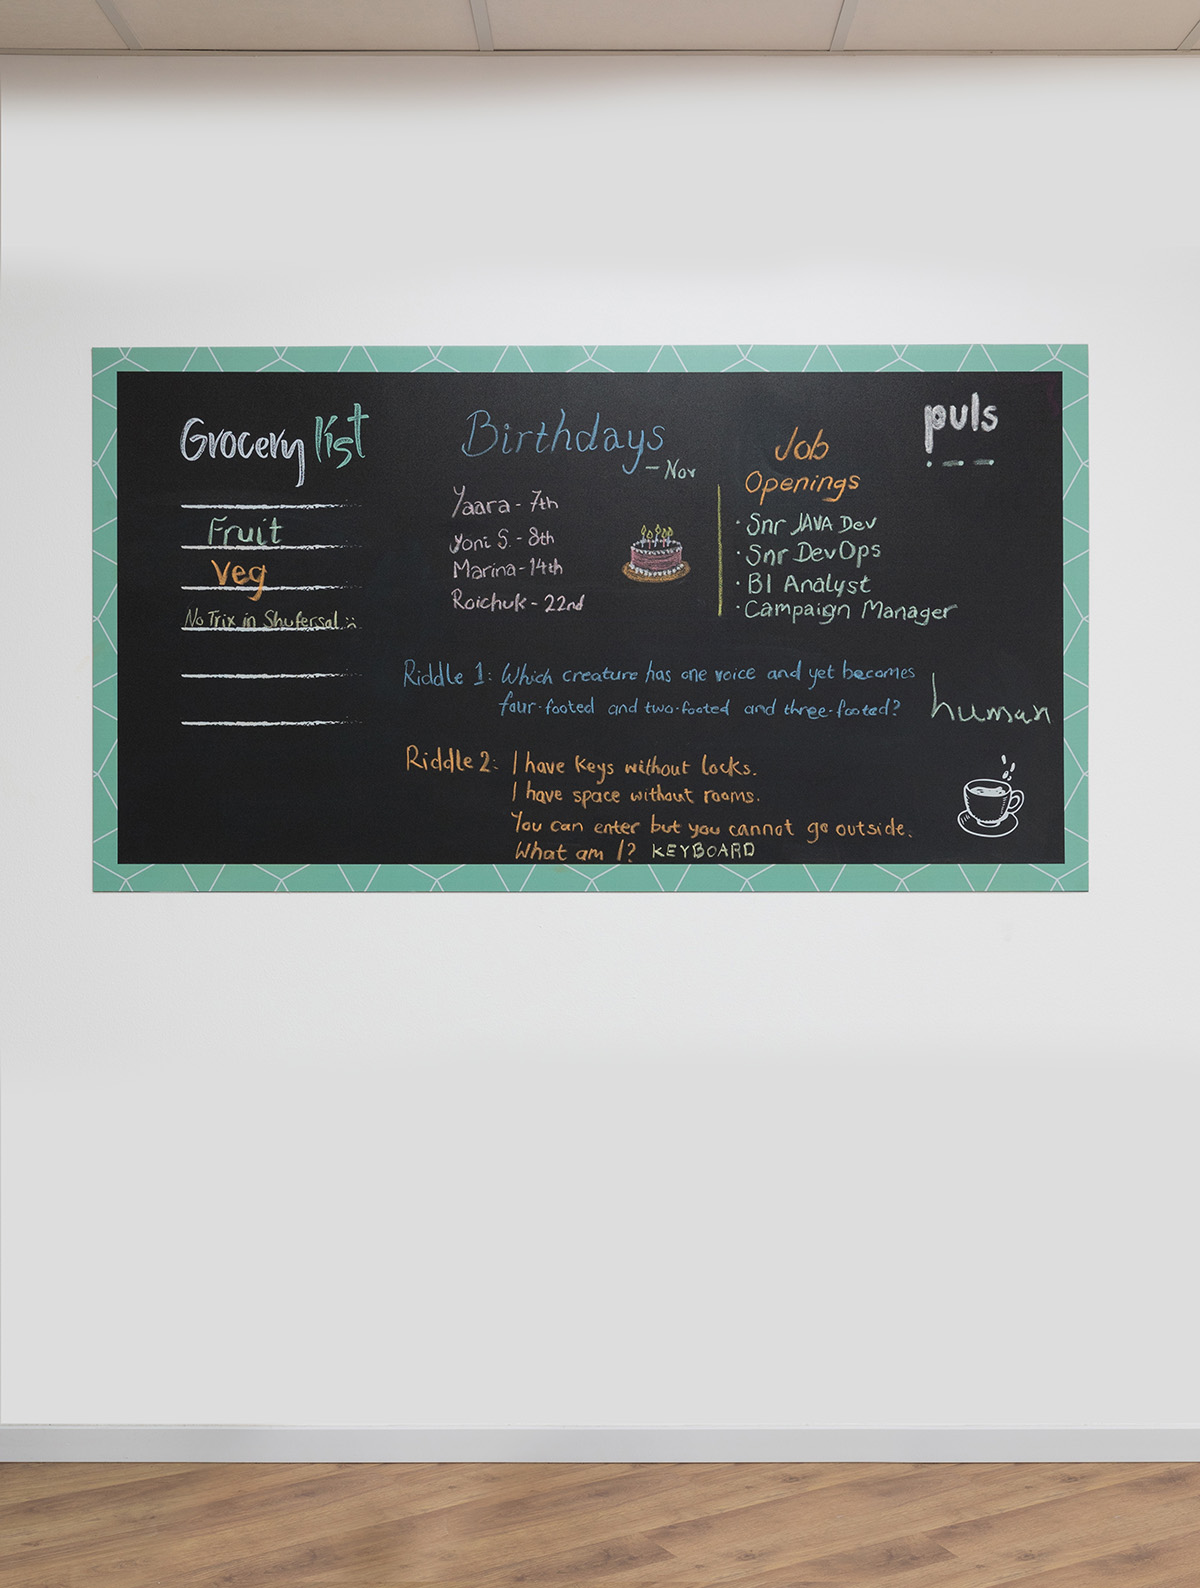 Grocery list
Fruit
Veg
No Trix in Shufersal :(
Birthdays
- Nov
Yaara - 7th
Yoni S. - 8th
Marina - 14th
Roichuk - 22nd
Job
Openings
· Snr JAVA Dev
· Snr DevOps
· BI Analyst
· Campaign Manager
puls
Riddle 1: Which creature has one voice and yet becomes
four-footed and two-footed and three-footed?
human
Riddle 2: I have keys without locks.
I have space without rooms.
You can enter but you cannot go outside.
What am I? KEYBOARD